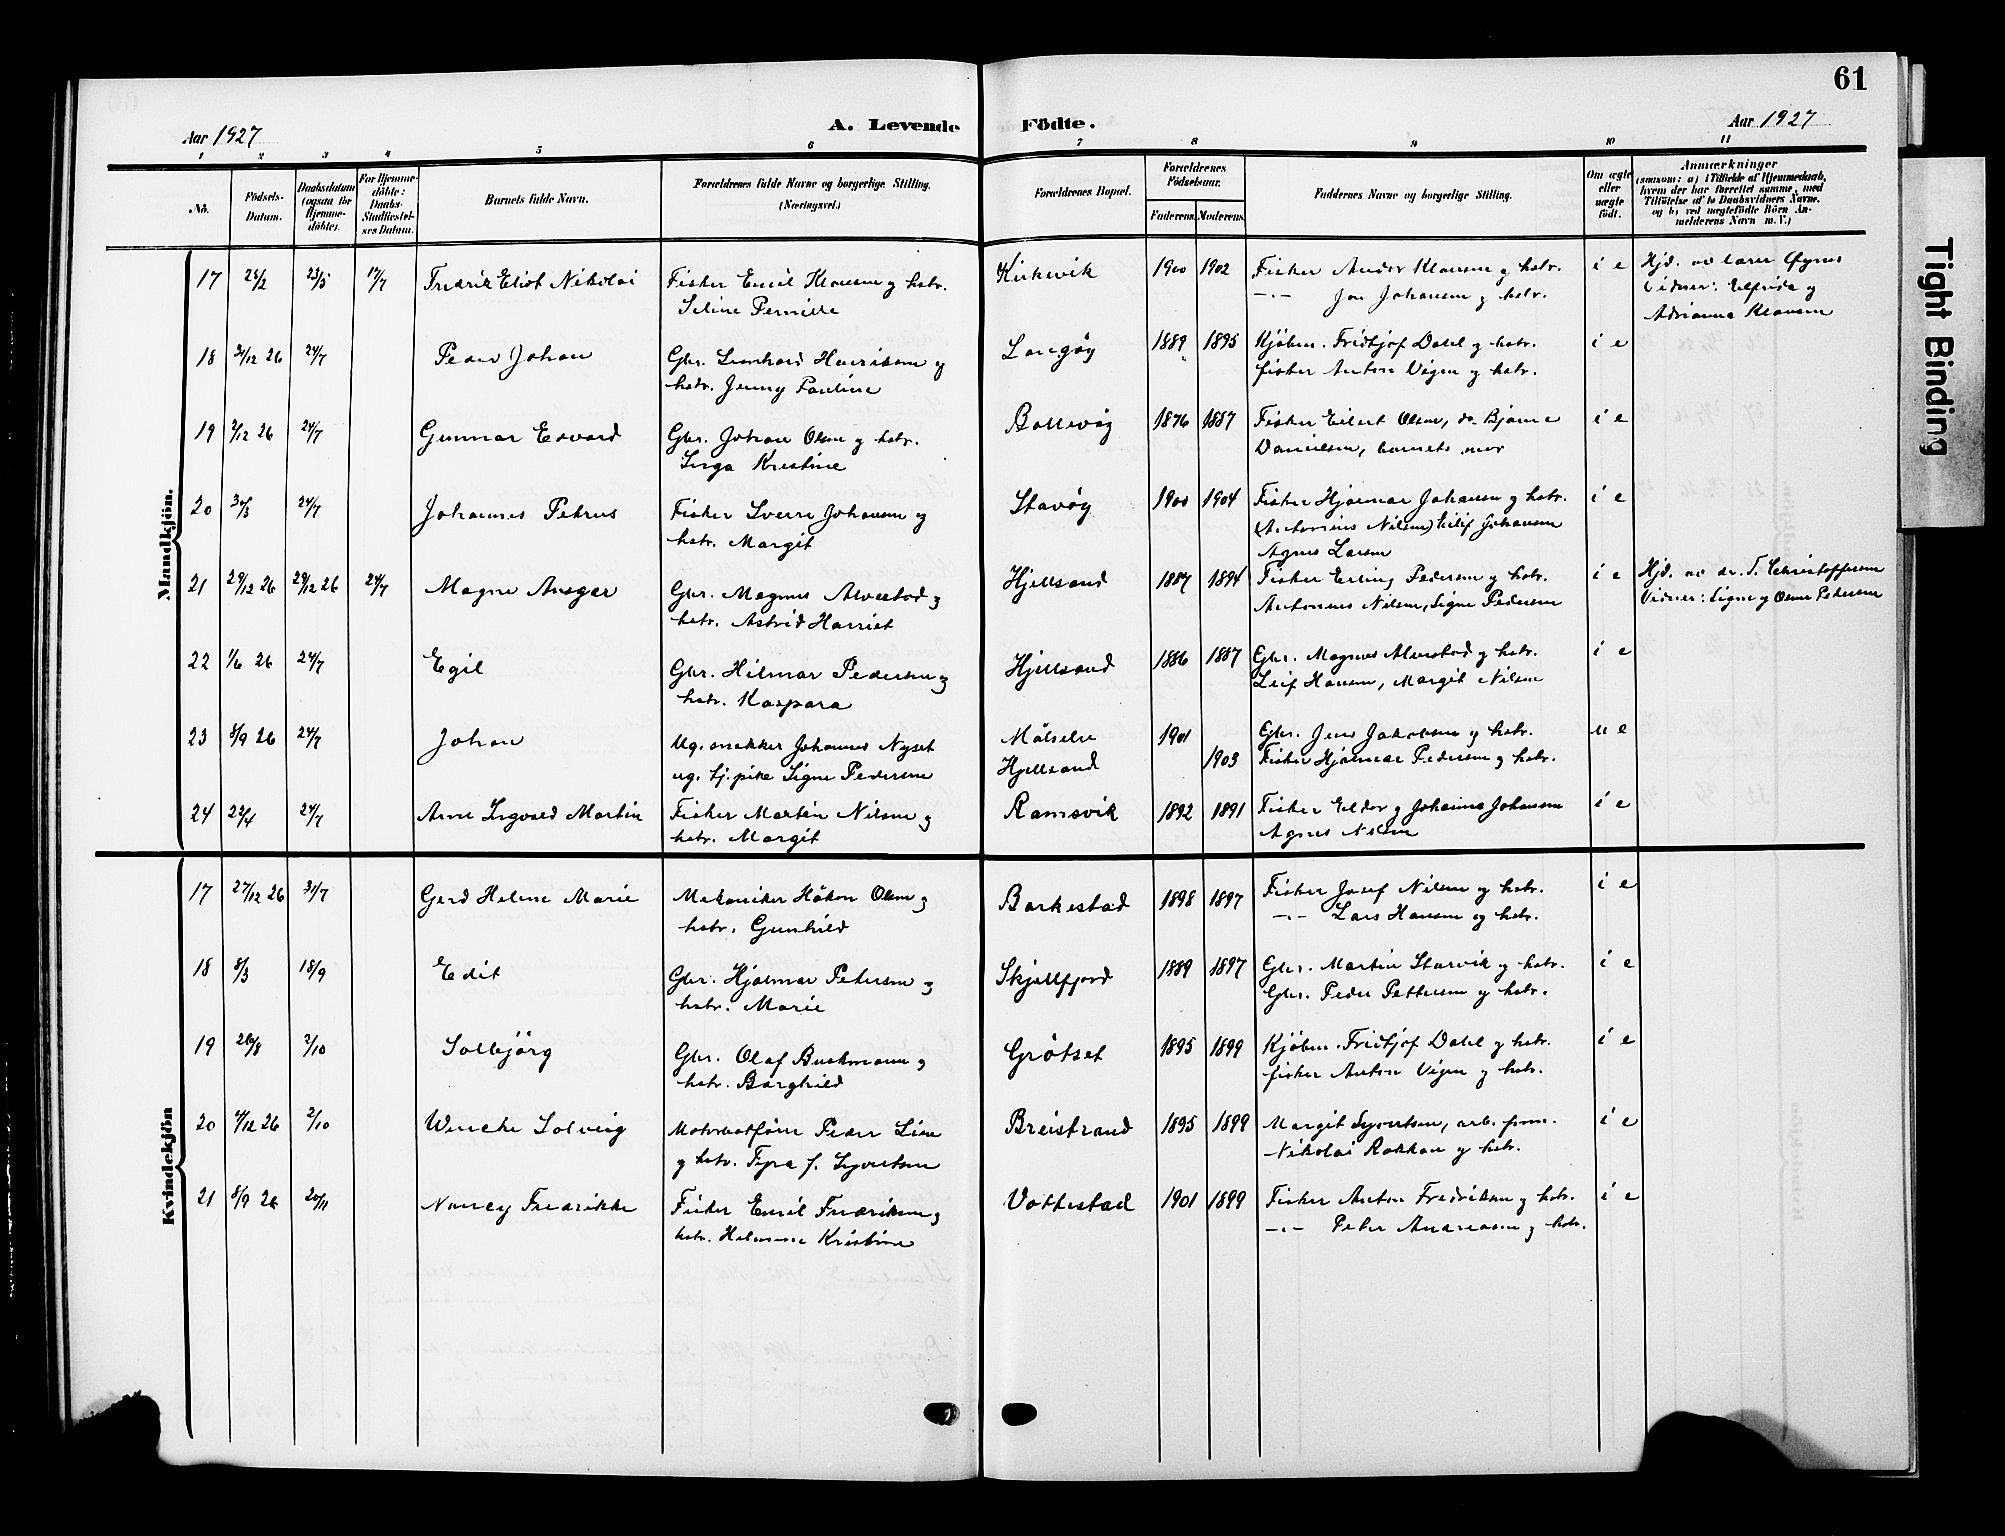 61
Aar 1927
A. Levende Födte.
Aar 1927
1 2 3 4 5 6 7 8 9 10 11
No.
Födsels-Datum.
Daabsdatum (ogsaa for Hjemme-döbte).
For Hjemme-döbte: Daabs-Stadfæstel-ses Datum.
Barnets fulde Navn.
Forældrenes fulde Navne og borgerlige Stilling. (Næringsvei.)
Forældrenes Bopæl.
Forældrenes Födselsaar.
Faderens. Moderens.
Faddernes Navne og borgerlige Stilling.
Om ægte eller uægte födt.
Anmærkninger
(saasom: a) i Tilfælde af Hjemmedaab, hvem der har forrettet samme, med Tilföielse af to Daabsvidners Navne. og b) ved uægtefödte Börn An-melderens Navn m. V.)
Mandkjön.
17 23/5 17/7 Fredrik Eliot Nikolai Fisker Emil Klausen og hstr. Kirkevik 1900 1902 Fisker Andor Klausen og hstr. i e Hjd. av lærer Øynes
Seline Pernille -"- Jon Johansen og hstr. Vidner: Elfrida og
Adrianna Klausen
18 24/7 Peder Johan Gbr. Leonhard Henriksen og Langöy 1889 1895 Kjöbm. Fridtjof Dahl og hstr. i e
hstr. Jenny Pauline fisker Anton Vigen og hstr.
19 2/12 26 24/7 Gunnar Edvard Gbr. Johan Olsen og hstr. 1876 1887 Fisker Eilert Olsen, do. Bjarne i e
Inga Kristine Danielsen, barnets mor
20 24/7 Johannes Petrus Fisker Sverre Johansen og Stavöy 1900 1904 Fisker Hjalmar Johansen og hstr. i e
hstr. Margit (Antonius Nilsen) Eilif Johansen
Agnes Larsen
21 29/12 26 29/12 26 24/7 Magne Ansgar Gbr. Magnus Alvestad og Hjellsand 1887 1894 Fisker Erling Pedersen og hstr. i e Hjd. av dr. T. Christoffersen
hstr. Astrid Harriet Antonius Nilsen, Signe Pedersen Vidner: Signe og Pedersen
22 1/6 26 24/7 Egil Gbr. Hilmar Pedersen og Hjellsand 1886 1887 Gbr. Magnus Alvestad og hstr. i e
hstr. Kaspara Leif Hansen, Margit Nilsen
23 8/9 26 24/7 Johan Ug. snekker Johannes Nyset Målselv 1901 Gbr. Jens Jakobsen og hstr. u e
ug. tj. pike Signe Pedersen Hjellsand 1903 Fisker Hjalmar Pedersen og hstr.
24 22/4 24/7 Arne Ingvald Martin Fisker Martin Nilsen og Ramsvik 1892 1891 Fisker Eldor og Johanna Johansen i e
hstr. Margit Agnes Nilsen
Kvindekjön
17 27/12 26 31/7 Gerd Helene Marie Mekaniker Håkon Olsen og Barkestad 1898 1897 Fisker Josef Nilsen og hstr. i e
hstr. Gunhild -"- Lars Hansen og hstr.
18 8/3 18/9 Edit Gbr. Hjalmar Petersen og Skjellfjord 1889 1897 Gbr. Martin Storvik og hstr. i e
hstr. Marie Gbr. Peder Pettersen og hstr.
19 26/8 2/10 Solbjörg Gbr. Olaf Buchmann og Grötset 1895 1899 Kjöbm. Fridtjof Dahl og hstr. i e
hstr. Borghild fisker Anton Vigen og hstr.
20 2/10 Wenche Solveig Peder Lien Breistrand 1895 1899 Margit Sjvertsen, arb. form. i e
og hstr. f. Sjvertsen Nikolai Rokkan og hstr.
21 8/9 26 20/11 Nancy Fredrikke Fisker Emil Fredriksen og Vottestad 1901 1899 Fisker Anton Fredriksen og hstr. i e
hstr. Kristine -"- Peter Andreasen og hstr.
Tight Binding